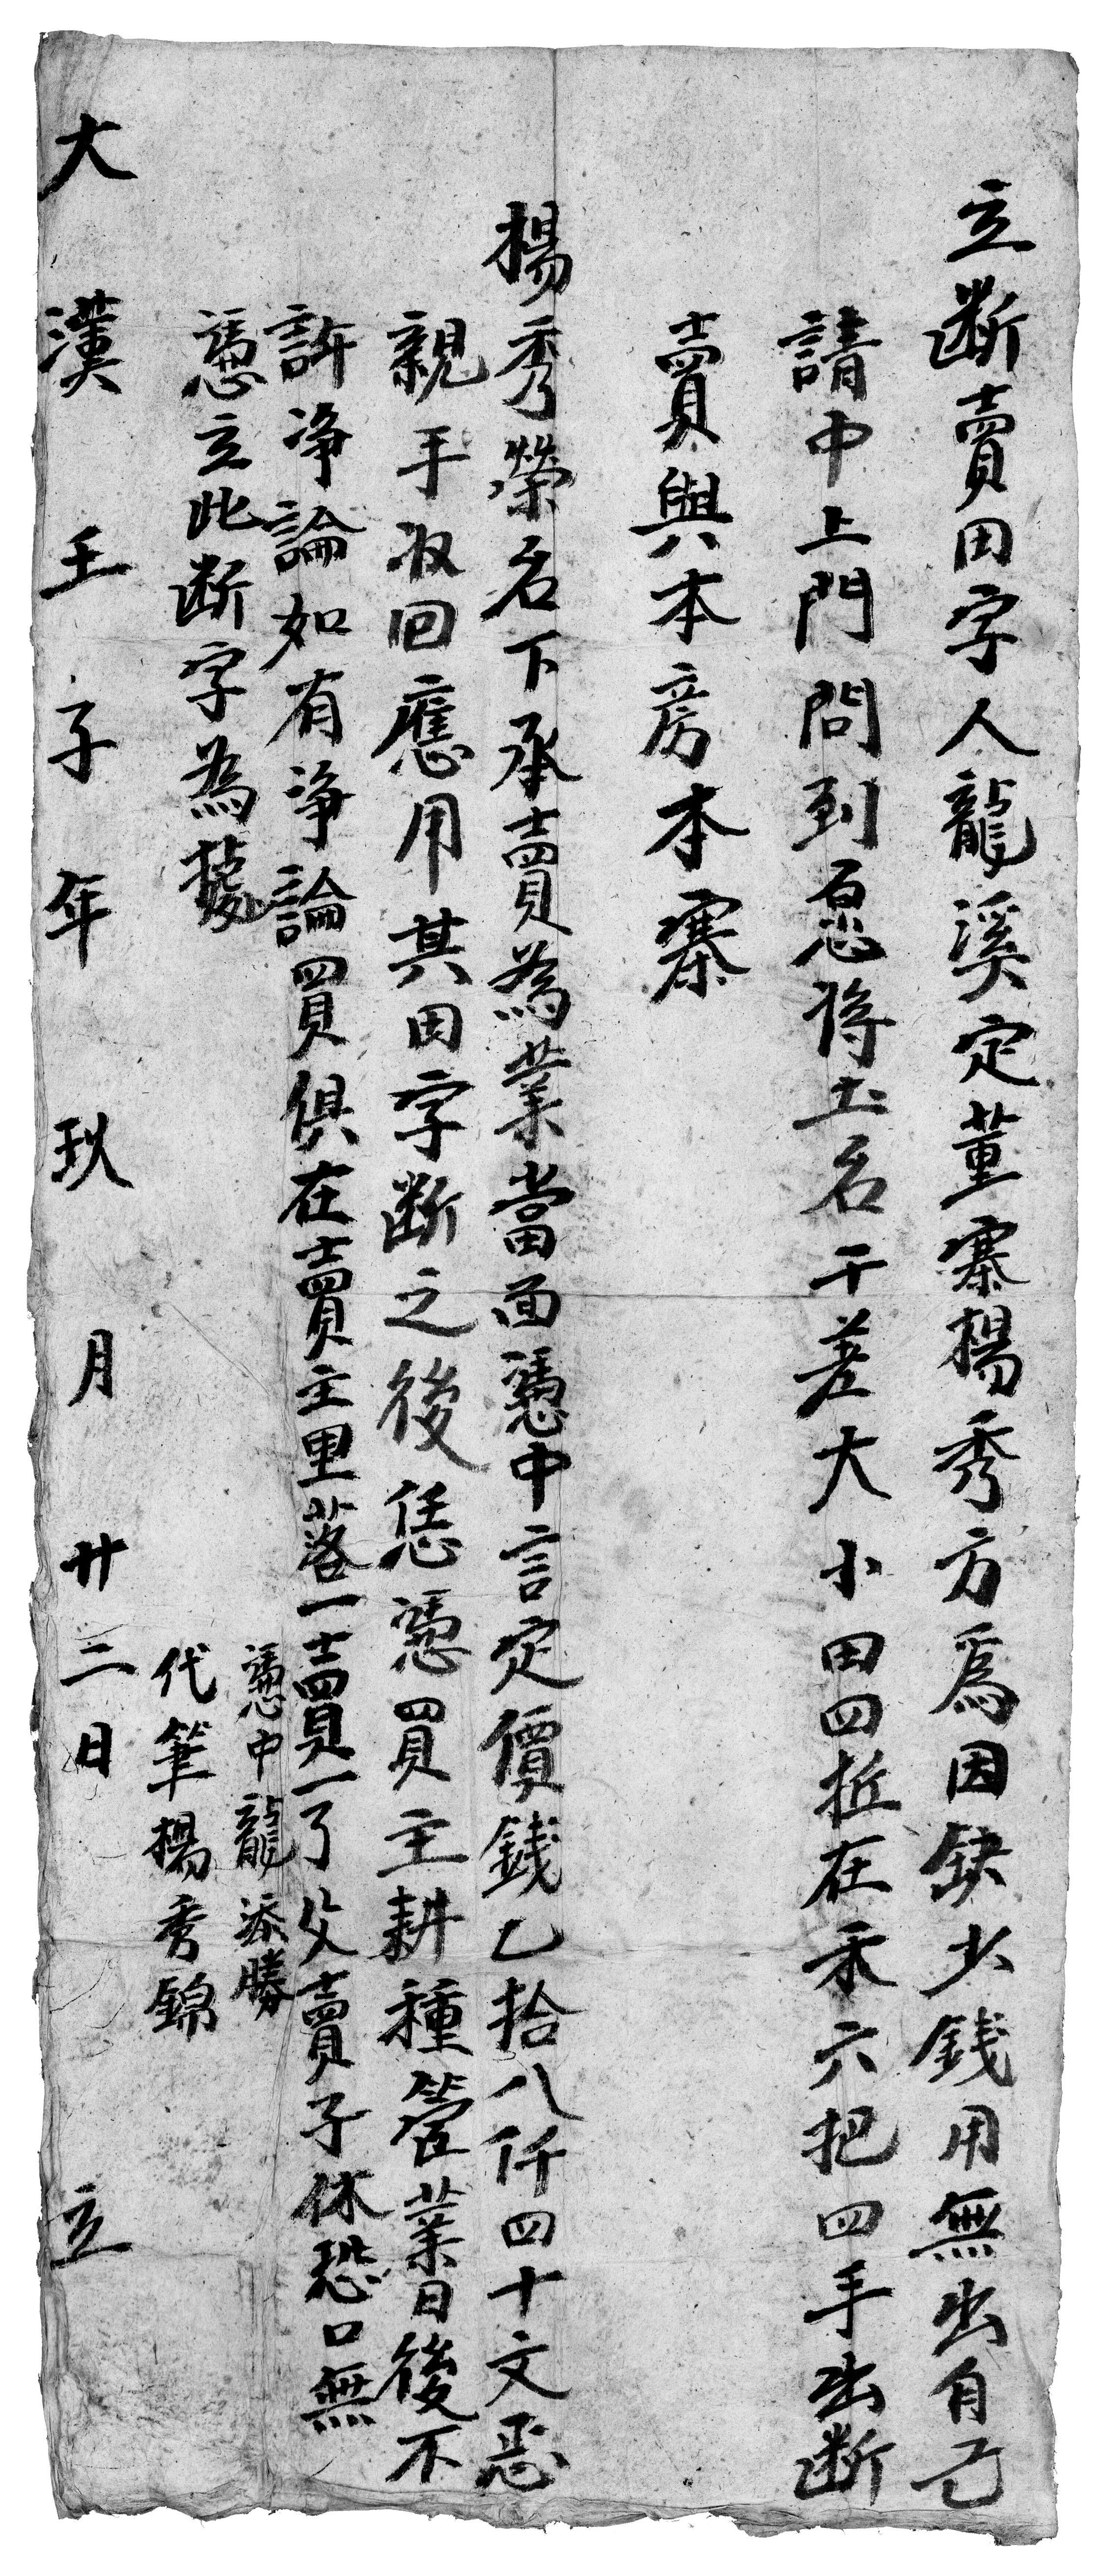 立断賣田字人龍溪定董寨楊秀方爲因缺少錢用無出自己
請中上門問到愿将土名干差大小田四坵在禾六把四手出断
賣與本房本寨
楊秀荣名下承賣為業當面憑中言定價錢乙拾八仟四十文悉
親手收回應用其田字断之後恁憑買主耕種管業日後不
許净論如有净論買俱在賣主里落一賣一了父賣子休恐口無
憑立此断字為據
憑中龍添勝
代筆楊秀錦
大漢壬子年玖月廿二日立